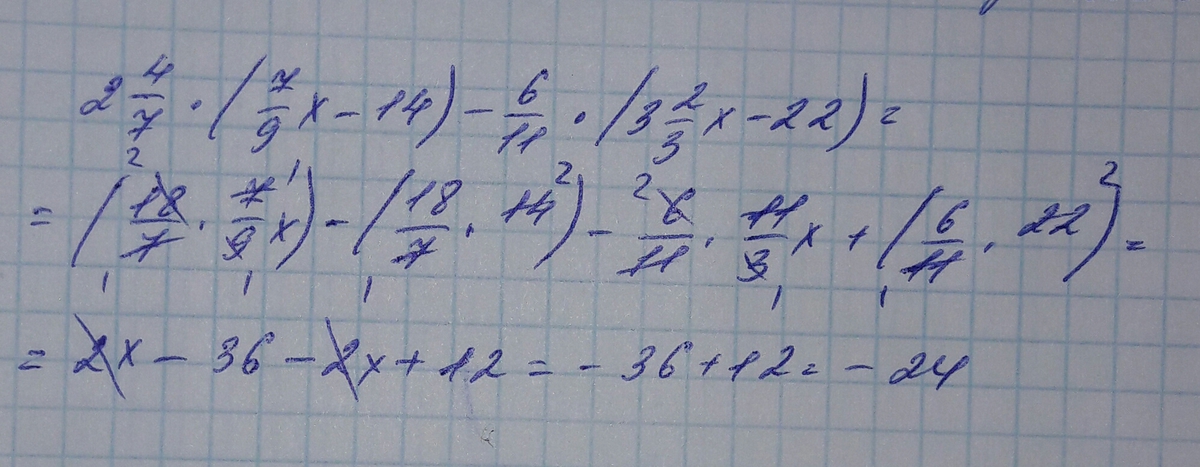 2 4/7 · (7/9 x - 14) - 6/11 · (3 2/3 x - 22) =
= (18/7 · 7/9 x) - (18/7 · 14) - 6/11 · 11/3 x + (6/11 · 22) =
= 2x - 36 - 2x + 12 = - 36 + 12 = - 24